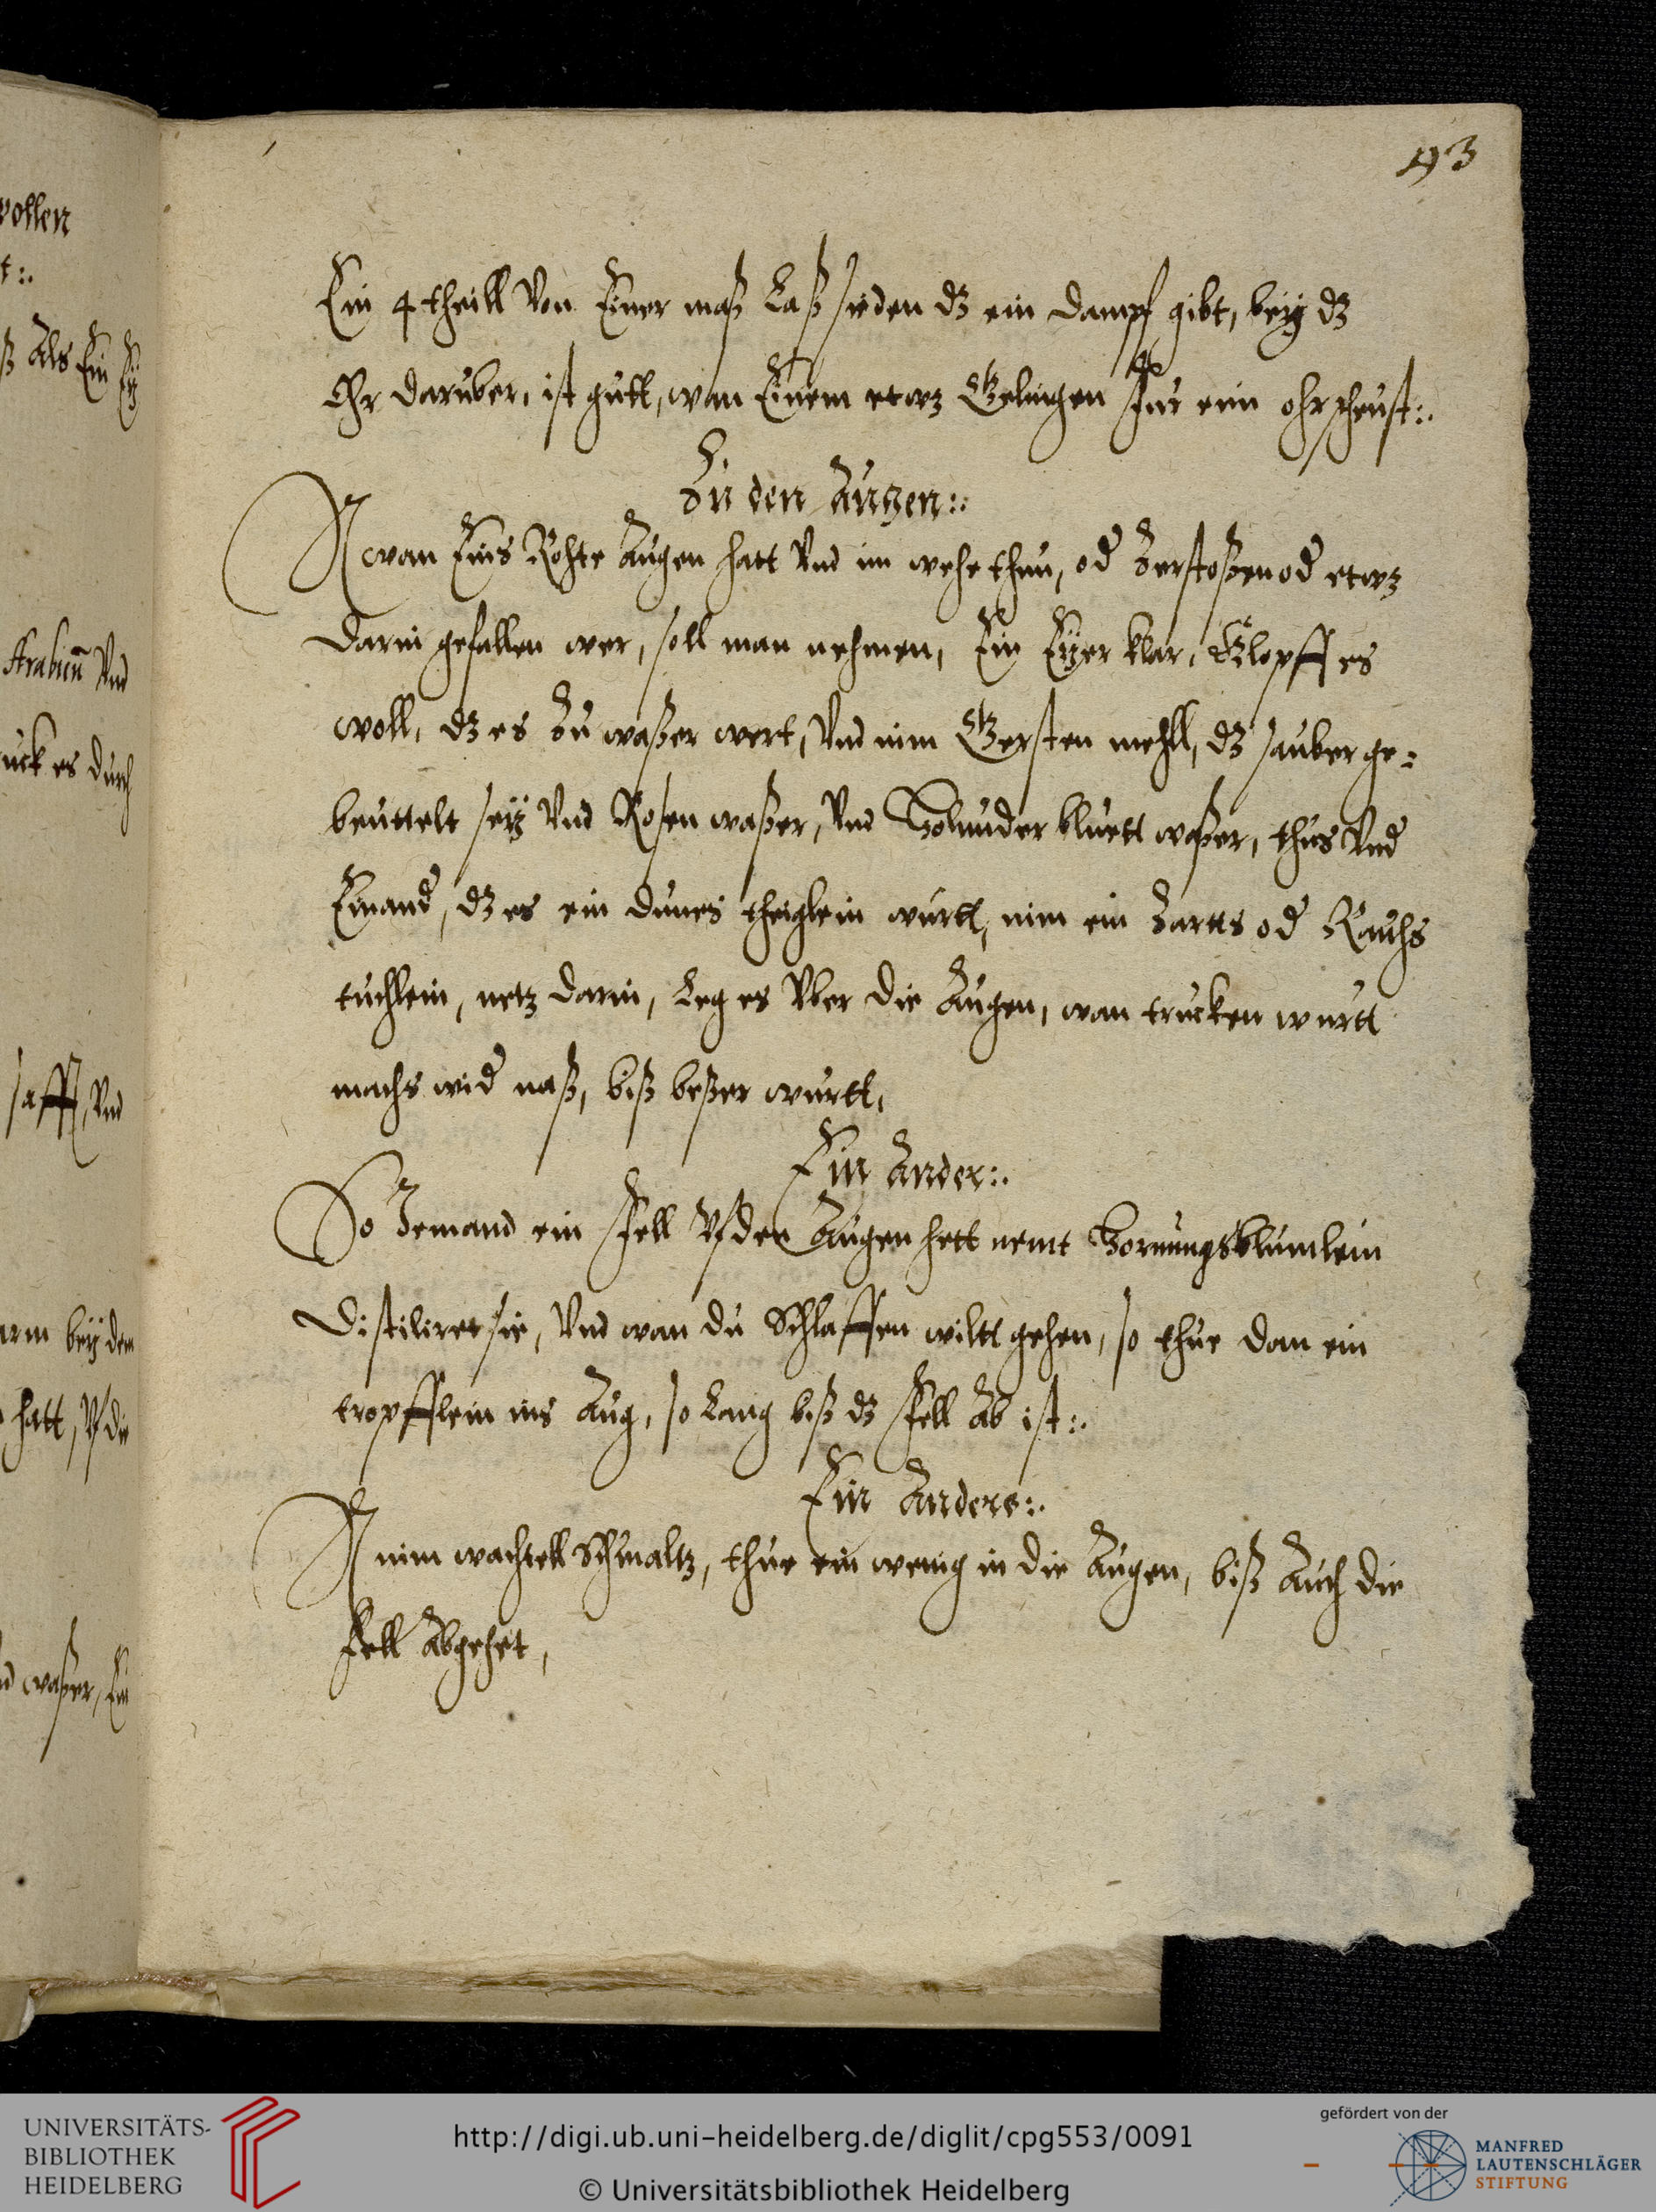 193
vollen
t:.
ß Als Ein Eÿ
Arabicū Vnd
uck es durch
safft, Vnd
arm beÿ dem
hatt, Vf die
waßer, Ein
Ein 4 theill Von Einer maß Laß sieden dz ein dampf gibt, beÿg dz
Ohr daruber, ist gutt, wan Einem etwz Gelingen fur ein ohr scheust:.
Zu den Augen:.
wan Eins Rohte Augen hatt Vnd im wehe thun, od Zerstoßen od etwz
darin gefallen wer, soll man nehmen, Ein Eÿer klar, Klopff es
woll, dz es Zu waßer wert, Vnd nim Gersten mehll, dz sauber ge=
beuttelt seÿ Vnd Rosen waßer, Vnd Holunder bluett waßer, thus Vnd
Einand, dz es ein dunes theiglein wurtt, nim ein Zartts od Rauhs
tuchlein, netz darin, Leg es Vber die Augen, wan trucken wurtt
machs wid naß, biß beßer wurtt,
Ein Ander:.
So Jemand ein fell Vf den Augen hett nemt Hornungsblumlein
distiliret sie, Vnd wan du Schlaffen wiltt gehen, so thue dan ein
tropfflein ins Aug, so Lang biß dz fell Ab ist:.
Ein Anders:.
nim wachtell Schmaltz, thue ein wenig in die Augen, biß Auch die
fell Abgehet,
UNIVERSITÄTS-
BIBLIOTHEK
HEIDELBERG
http://digi.ub.uni-heidelberg.de/diglit/cpg553/0091
© Universitätsbibliothek Heidelberg
gefördert von der
MANFRED
LAUTENSCHLÄGER
STIFTUNG